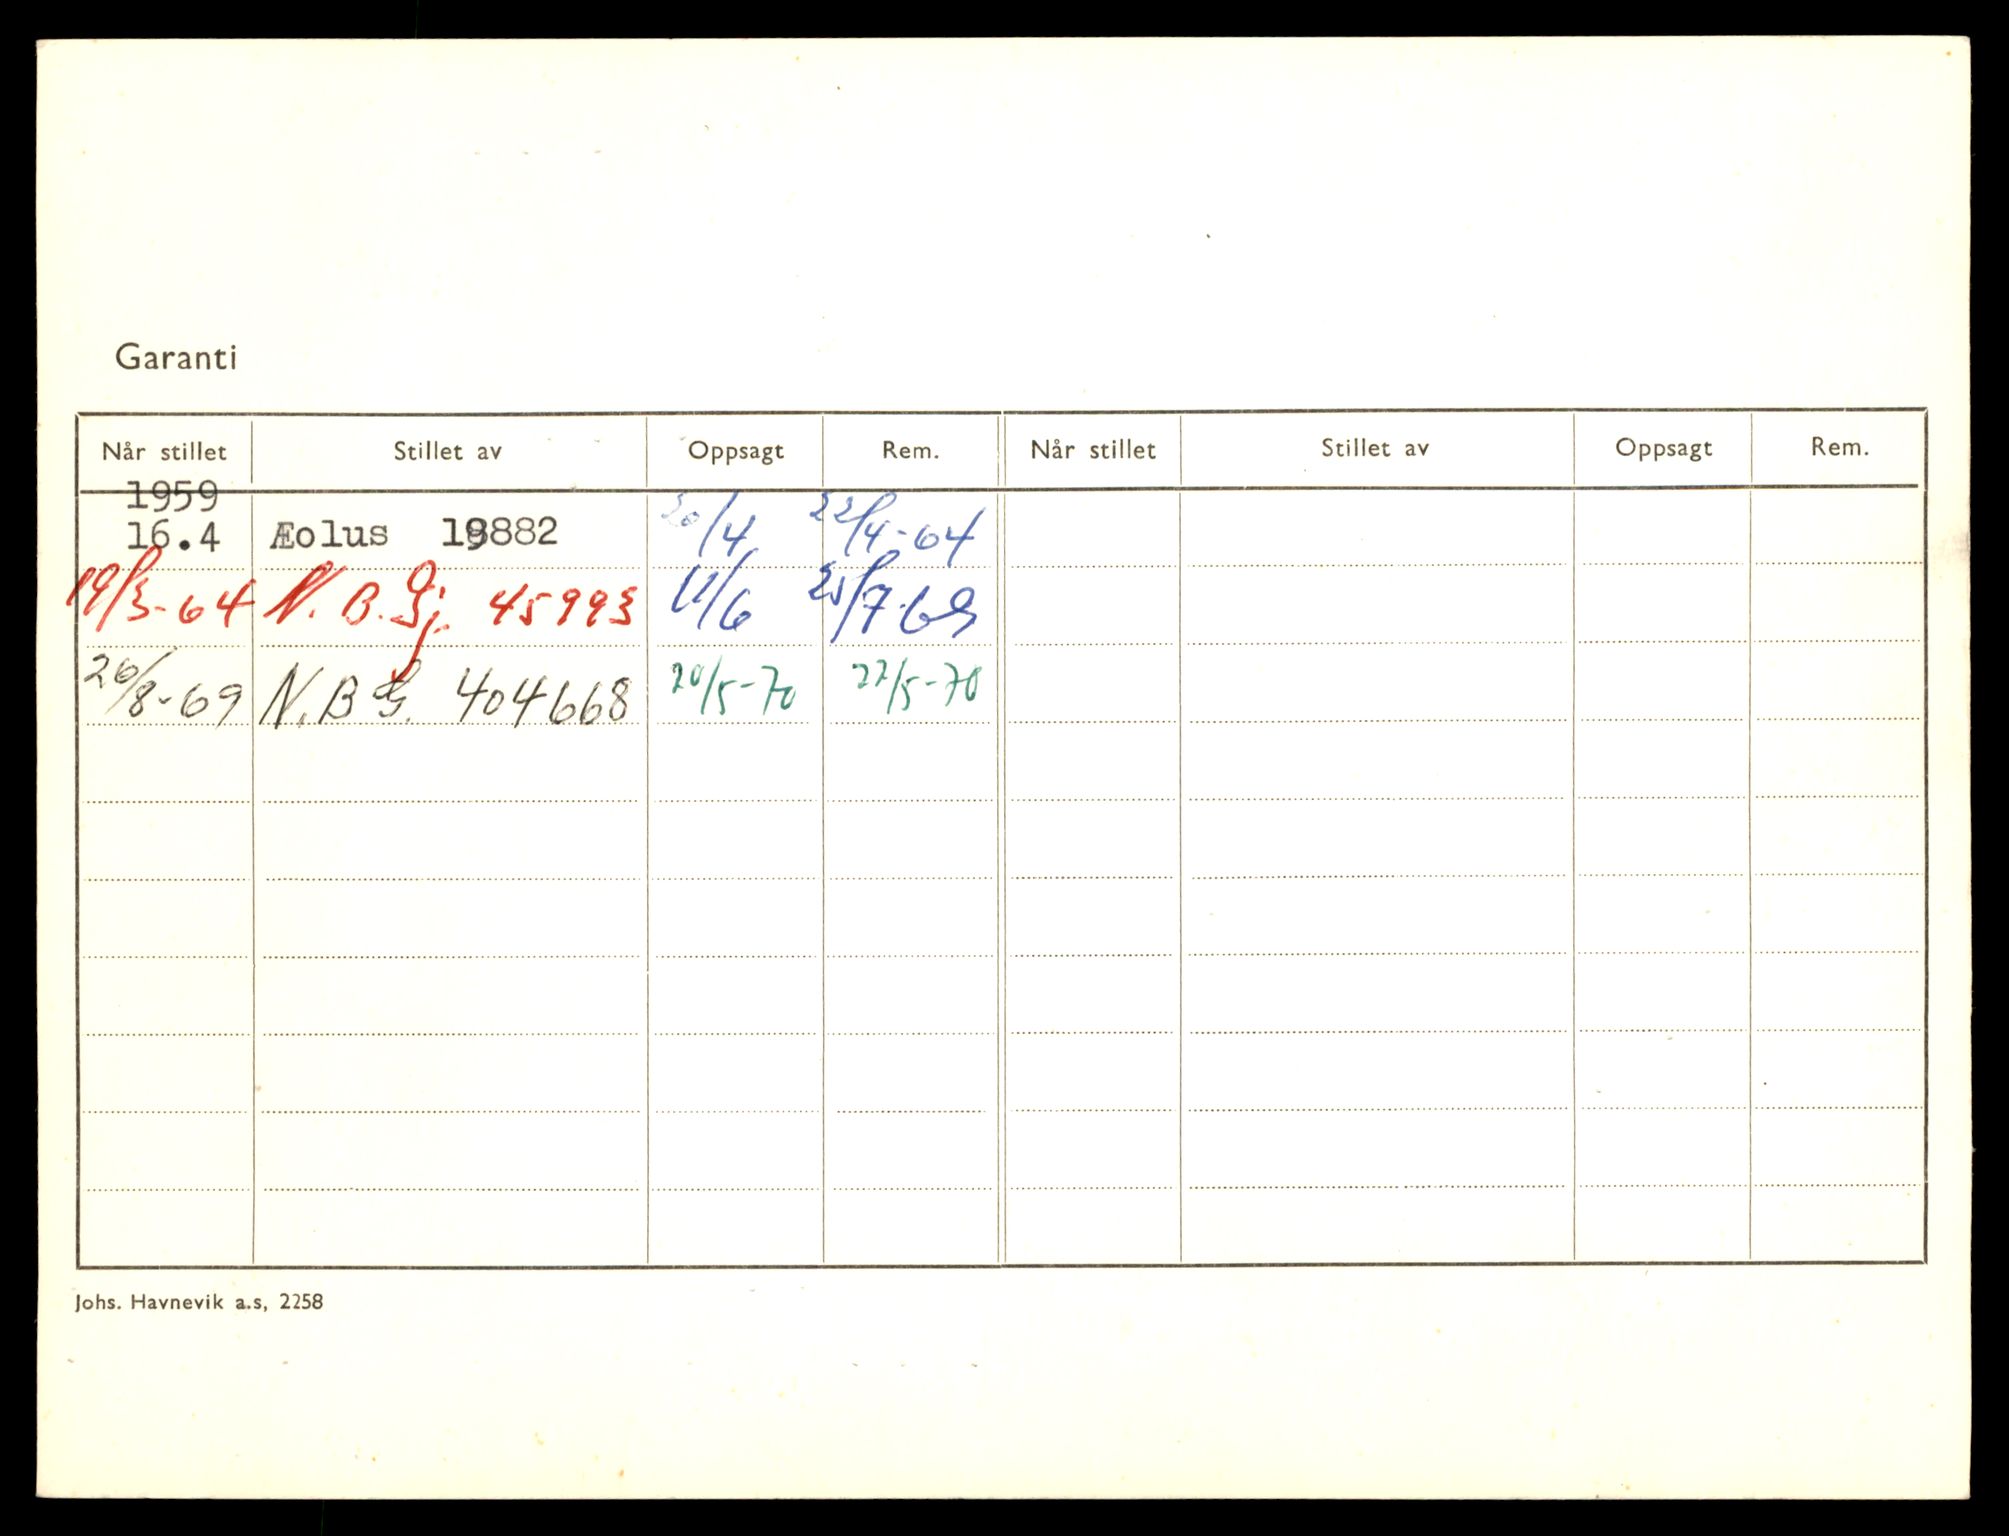 Garanti
Når stillet Stillet av Oppsagt Rem. Når stillet Stillet av Oppsagt Rem.
1959
16.4 Æolus 19882 20/4 22/4-64
19/3-64 N.B.G. 45993 11/6 25/7-69
26/8-69 N.B.G. 404668 20/5-70 22/5-70
Johs. Havnevik a.s, 2258